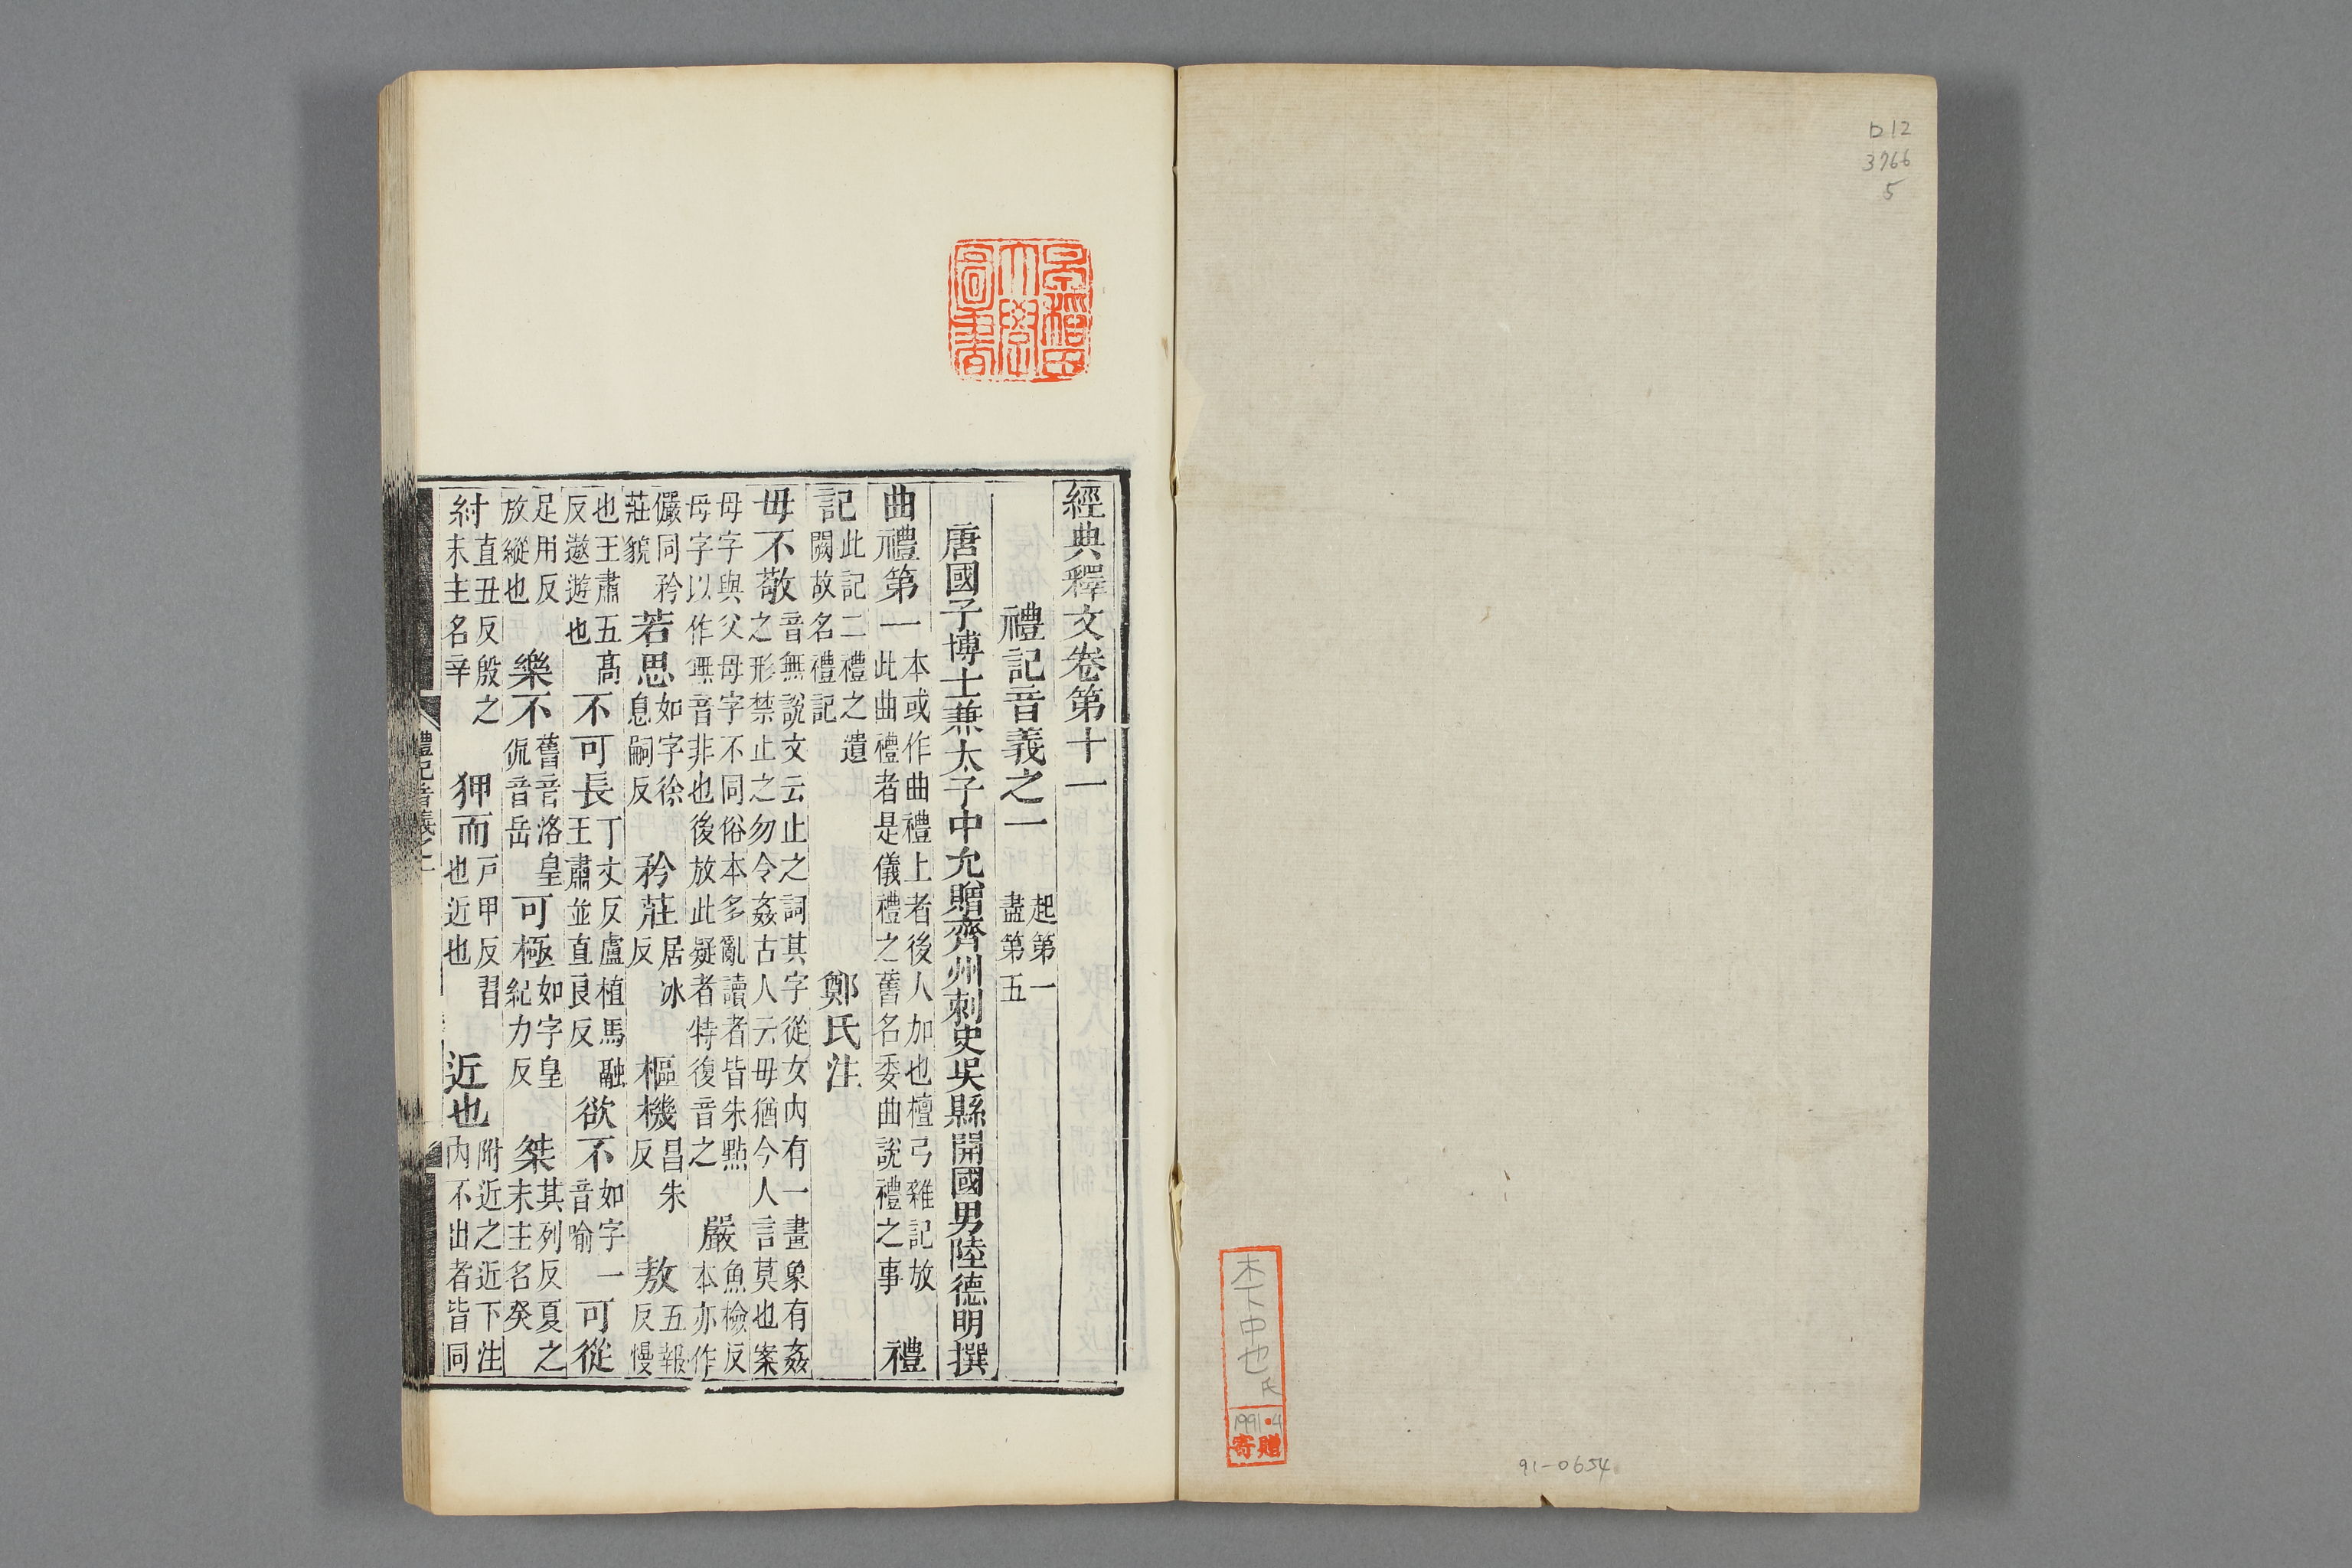 D12
3766
5
木下中也氏
1991・4
寄贈
91-0654
早稲田
大學
圖書
經典釋文卷第十一
禮記音義之一 起第一盡第五
唐國子博士兼太子中允贈齊州刺史吳縣開國男陸德明撰
曲禮第一 本或作曲禮上者後人加也檀弓雜記放此曲禮者是儀禮之舊名委曲說禮之事 禮
記 此記二禮之遺闕故名禮記 鄭氏注
毋不敬 音無說文云止之詞其字從女內有一畫象有姦之形禁止之勿令姦古人云毋猶今人言莫也案
毋字與父母字不同俗本多亂讀者皆朱點母字以作無音非也後放此疑者特復音之 嚴 魚檢反本亦作
儼同矜莊貌 若思 如字徐息嗣反 矜莊 居冰反 樞機 昌朱反 敖 五報反慢
也王肅五高反遨遊也 不可長 丁丈反盧植馬融王肅並直良反 欲不 如字一音喻 可從
足用反放縱也 樂不 舊音洛皇侃音岳 可極 如字皇紀力反 桀 其列反夏之末主名癸
紂 直丑反殷之末主名辛 狎而 戶甲反習也近也 近也 附近之近下注內不出者皆同
禮記音義之一